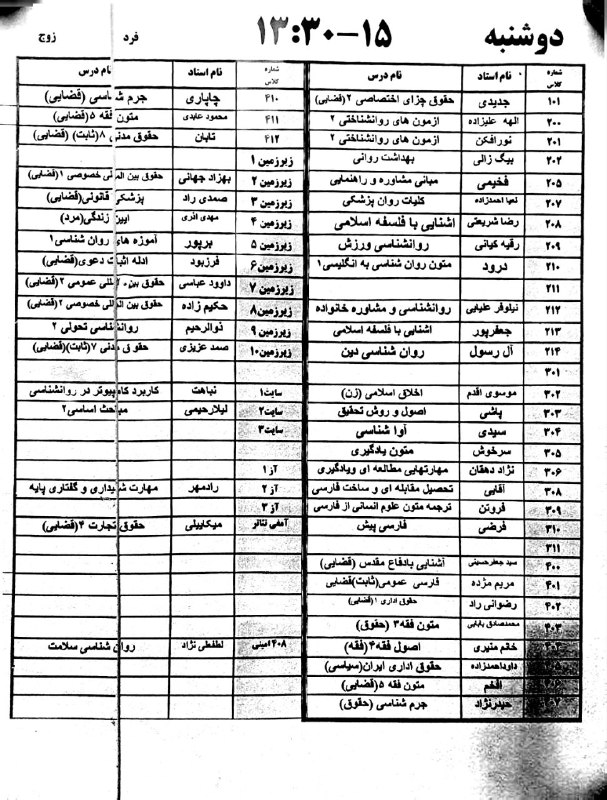 دوشنبه ۱۳:۳۰-۱۵ فرد زوج
شماره کلاس نام استاد نام درس
۱۰۱ جدیدی حقوق جزای اختصاصی ۲(قضایی)
۲۰۰ الهه علیزاده ازمون های روانشناختی ۲
۲۰۱ نورافکن ازمون های روانشناختی ۲
۲۰۲ بیگ زالی بهداشت روانی
۲۰۵ فخیمی مبانی مشاوره و راهنمایی
۲۰۷ نعیا احمدزاده کلیات روان پزشکی
۲۰۸ رضا شریعتی اشنایی با فلسفه اسلامی
۲۰۹ رقیه کیانی روانشناسی ورزش
۲۱۰ درود متون روان شناسی به انگلیسی۱
۲۱۱
۲۱۲ نیلوفر علیایی روانشناسی و مشاوره خانواده
۲۱۳ جعفرپور اشنایی با فلسفه اسلامی
۲۱۴ آل رسول روان شناسی دین
۳۰۱
۳۰۲ موسوی اقدم اخلاق اسلامی (زن)
۳۰۳ پاشی اصول و روش تحقیق
۳۰۴ سیدی آوا شناسی
۳۰۵ سرخوش متون یادگیری
۳۰۶ نژاد دهقان مهارتهایی مطالعه ای ویادگیری
۳۰۸ آقایی تحصیل مقابله ای و ساخت فارسی
۳۰۹ فروتن ترجمه متون علوم انسانی از فارسی
۳۱۰ فرضی فارسی پیش
۳۱۱
۴۰۰ سید جعفرحسینی آشنایی بادفاع مقدس (قضایی)
۴۰۱ مریم مژده فارسی عمومی(ثابت)قضایی
۴۰۲ رضوانی راد حقوق اداری ۱(قضایی)
۴۰۳ محمدصادق بابایی متون فقه۳ (حقوق)
خانم منیری اصول فقه۴(فقه)
داوداحمدزاده حقوق اداری ایران(سیاسی)
افخم متون فقه ۵(قضایی)
حیدرنژاد جرم شناسی (حقوق)
شماره کلاس نام استاد نام درس
۴۱۰ چاپاری جرم شناسی (قضایی)
۴۱۱ محمود عابدی متون فقه ۵(قضایی)
۴۱۲ تابان حقوق مدنی ۸(ثابت) (قضایی)
زیرزمین ۱
زیرزمین ۲ بهزاد جهانی حقوق بین المللی خصوصی ۱(قضایی)
زیرزمین ۳ صمدی راد پزشکی قانونی(قضایی)
زیرزمین ۴ مهدی آذری ایین زندگی(مرد)
زیرزمین ۵ برپور آموزه های روان شناسی۱
زیرزمین ۶ فرزبود ادله اثبات دعوی(قضایی)
زیرزمین ۷ داوود عباسی حقوق بین المللی عمومی ۲(قضایی)
زیرزمین ۸ حکیم زاده حقوق بین المللی خصوصی ۲(قضایی)
زیرزمین ۹ ذوالرحیم روانشناسی تحولی ۲
زیرزمین ۱۰ صمد عزیزی حقوق مدنی ۷(ثابت)(قضایی)
سایت۱ نباهت کاربرد کامپیوتر در روانشناسی
سایت۲ لیلارحیمی مباحث اساسی۲
سایت۳
آز ۱
آز ۲ رادمهر مهارت شنیداری و گفتاری پایه
آز ۳
آمفی تئاتر میکاییلی حقوق تجارت ۴(قضایی)
۴۰۸ امینی لطفطی نژاد روان شناسی سلامت